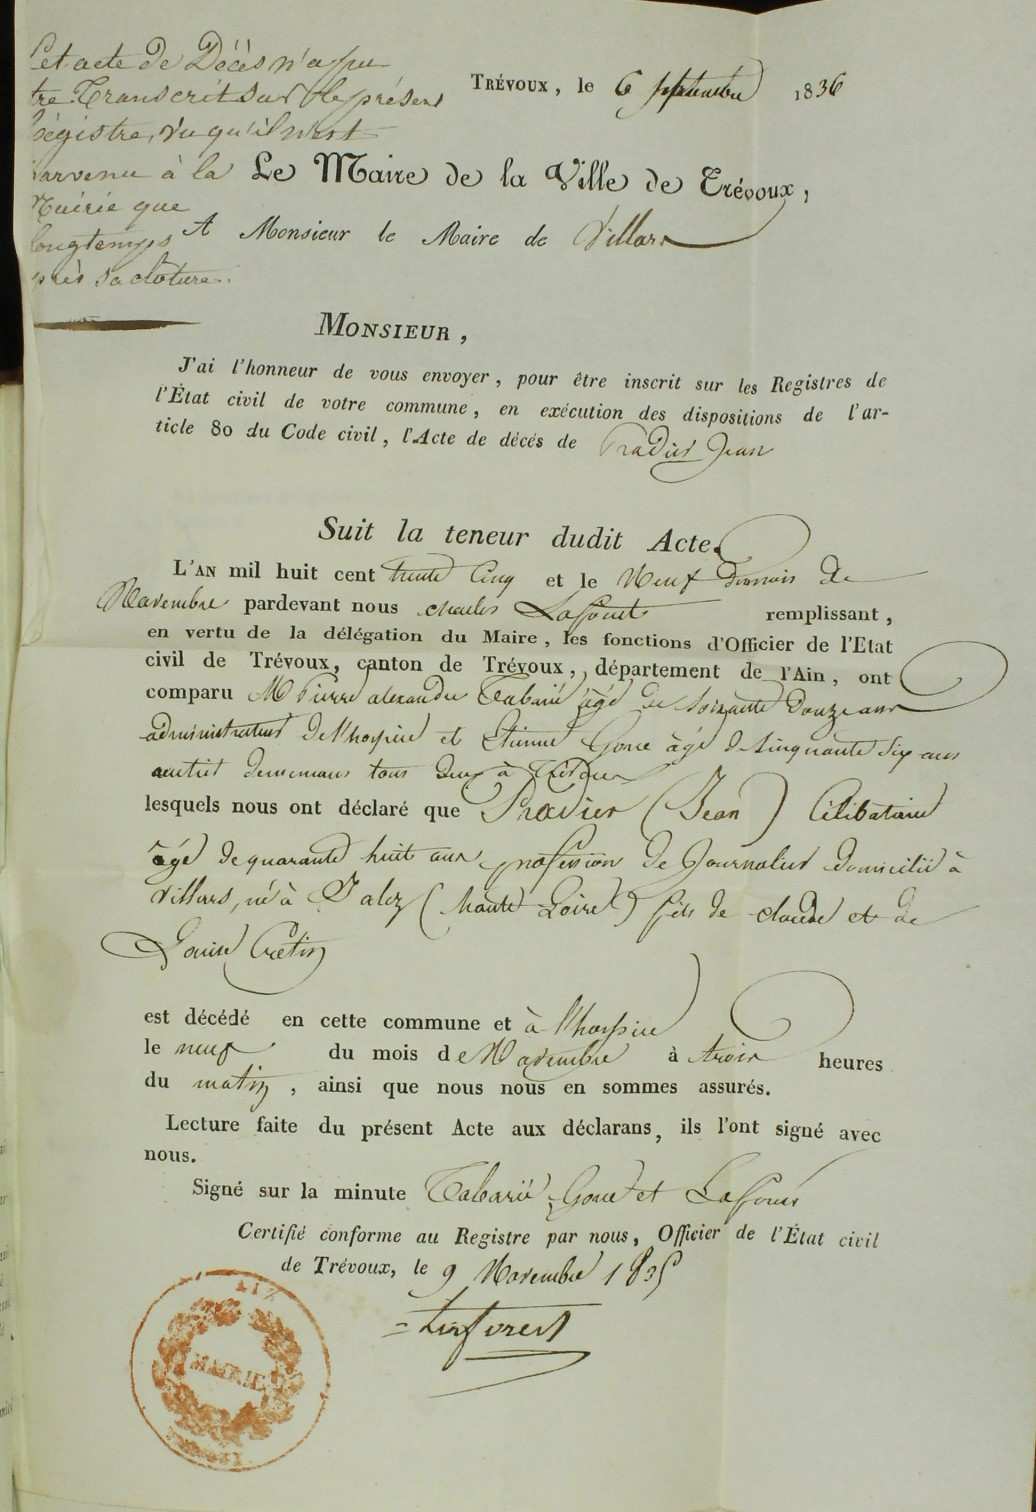 Cet acte de Décès n'a pu
être Transcrit sur le présent
Régistre, vu qu'il n'est
parvenu à la
Mairie que
longtemps
après sa clôture.
TRÉVOUX, le 6 septembre 1836
Le Maire de la Ville de Trévoux,
A Monsieur le Maire de Villars
MONSIEUR,
J'ai l'honneur de vous envoyer, pour être inscrit sur les Registres de
l'État civil de votre commune, en exécution des dispositions de l'ar-
ticle 80 du Code civil, l'Acte de décés de Pradier Jean
Suit la teneur dudit Acte.
L'AN mil huit cent trente cinq et le Neuf du mois de
Novembre pardevant nous charles Laffont remplissant,
en vertu de la délégation du Maire, les fonctions d'Officier de l'Etat
civil de Trévoux, canton de Trévoux, département de l'Ain, ont
comparu M Pierre alexandre Tabarié âgé de soixante douze ans
administrateur de l'hospice et Etienne âgé de cinquante six ans
demeurans tous deux à Trévoux
lesquels nous ont déclaré que Pradier (Jean) Célibataire
âgé de quarante huit ans profession de Journalier domicilié à
Villars, né à (haute Loire) fils de claude et de
Louise Cretin
est décédé en cette commune et à l'hospice
le neuf du mois de Novembre à trois heures
du matin, ainsi que nous nous en sommes assurés.
Lecture faite du présent Acte aux déclarans, ils l'ont signé avec
nous.
Signé sur la minute Tabarié, et Laffont
Certifié conforme au Registre par nous, Officier de l'État civil
de Trévoux, le 9 Novembre 1835
MAIRIE